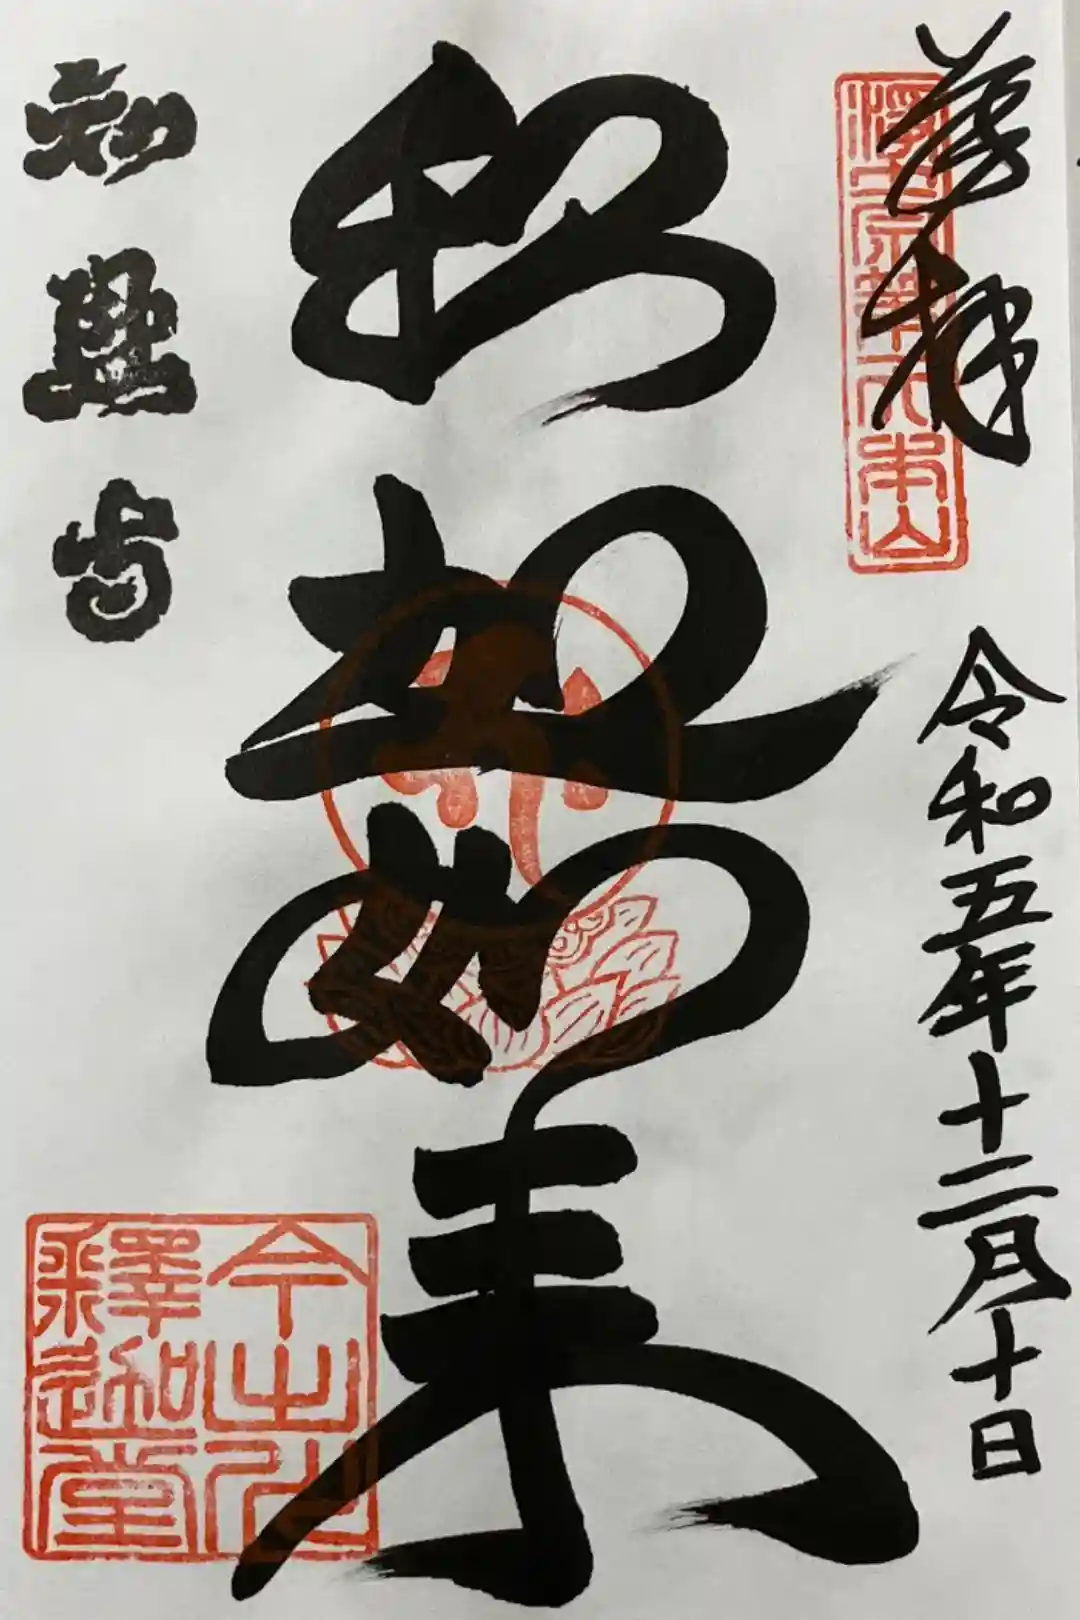 奉拝
淨土宗 本山
令和五年十二月十日
釈迦如来
知恩寺
今出川
釋迦堂